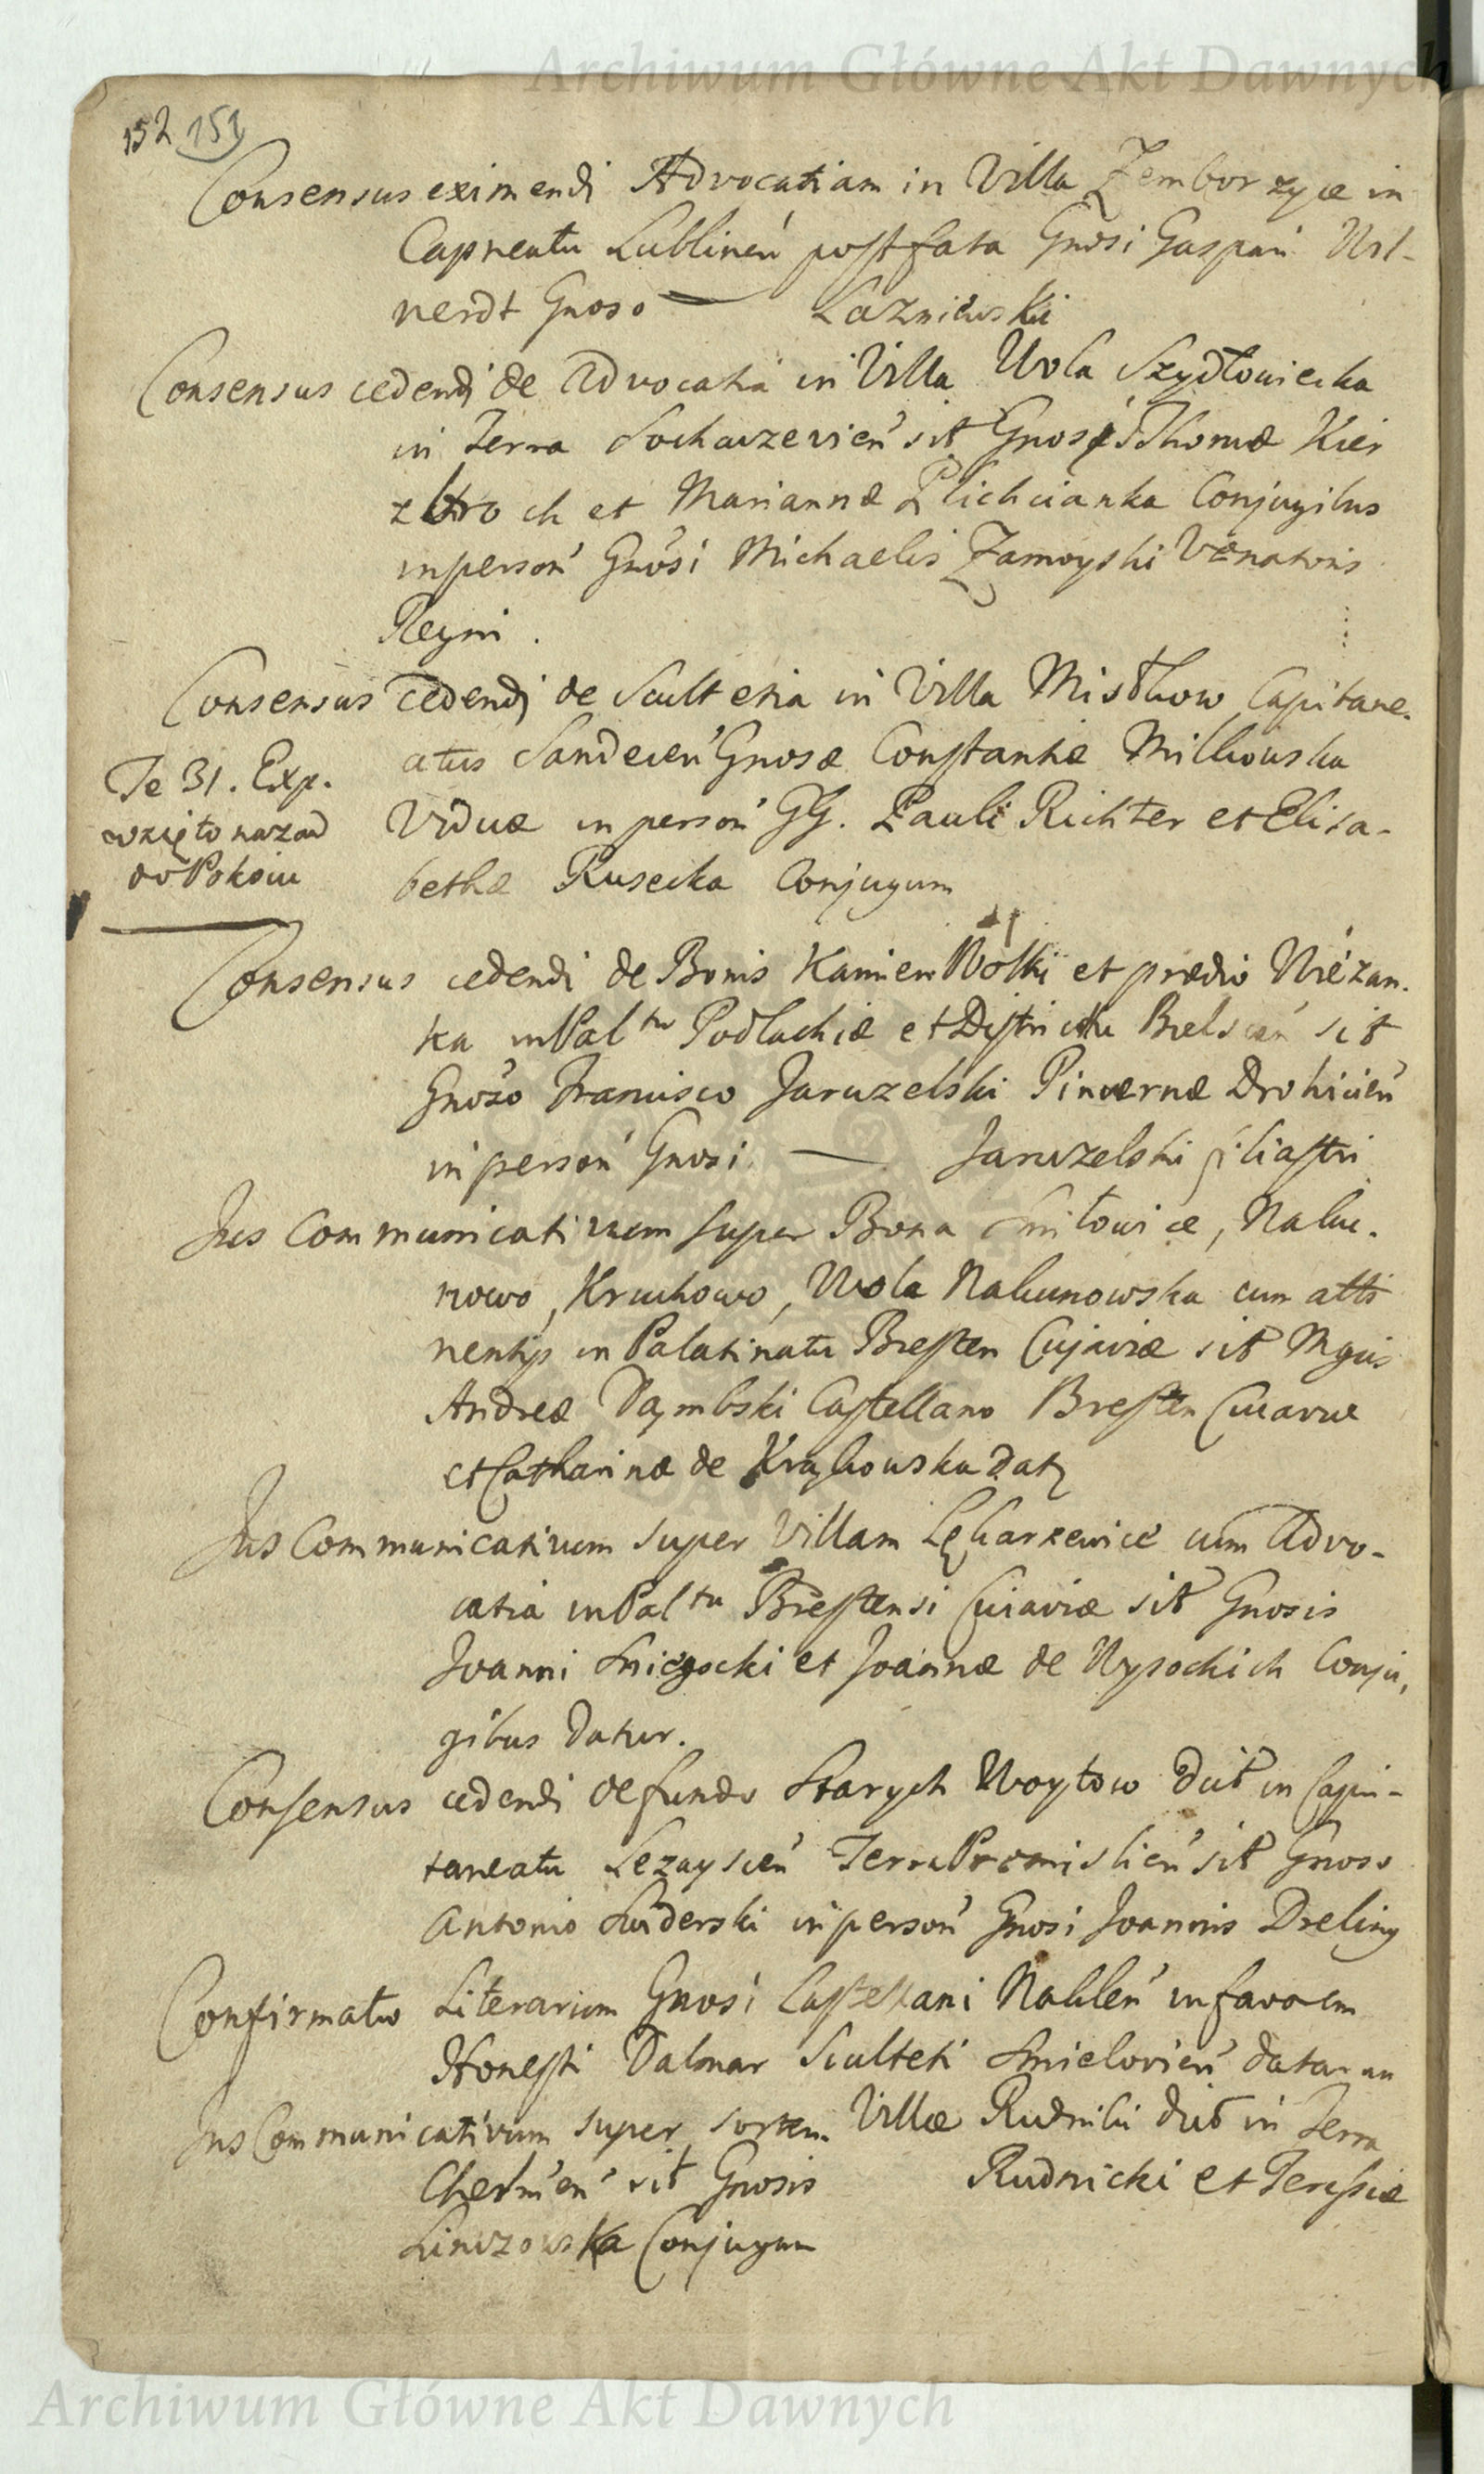 Archiwum Główne Akt Dawnych
152 151
Consensus eximendi Advocatiam in Villa Zemborzyce in
Capneatu Lublineń post fata Gnosi Gaspari
nerdt Gnoso — Lazniewski
Consensus cedendi de Advocatia in Villa Wola Szydłowiecka
in Terra Sochaczevień sit Gnosis Thomæ Kier
z ch et Mariannæ Plichcianka Conjugibus
in person Gnosi Michaelis Zamoyski Venatoris
Regni.
Consensus cedendi de Scultetia in Villa Capitane-
atus Sandeceń Gnosæ Constantiæ Milkowska
Te 31. Exp.
wzięto nazad
do Pokoiu
Viduæ in person GG. Pauli Richter et Elisa-
bethæ Rusecka Conjugum
Consensus cedendi de Bonis Kamien Wolki et prædio Niezan-
ka in Pal tu Podlachiæ et Districtu Bielsceń sit
Gnoso Francisco Jaruzelski Pincernæ Drohicień
in person Gnosi — Jaruzelski filiastri
Jus Communicativum super Bona Smiłowice, Naku-
nowo, Kruchowo, Wola Nakunowska cum atti
nentijs in Palatinatu Bresten Cujaviæ sit Mgcis
Andreæ Dąmbski Castellano Bresten Cuiaviæ
et Catharinæ de Krąkowska datr
Jus Communicativum super Villam Lękarzewice cum Advo-
catia in Pal tu Brestensi Cuiaviæ sit Gnosis
Joanni Sniegocki et Joannæ de Wysockich Conju,
gibus datur.
Consensus cedendi de fundo Starych Woytow dict in Capi-
taneatu Lezayscień Terra Premislień sit Gnoso
Antonio Swiderski in person Gnosi Joannis Dreling
Confirmatio Literarum Gnosi Castellani Nakleń in favorem
Honesti Dalmar Sculteti Smielovień datarum
Jus Communicativum super sortem Villæ Rudniki dict in Terra
Chelmeń sit Gnosis Rudnicki et Teressiæ
Linczowska Conjugum
Archiwum Główne Akt Dawnych